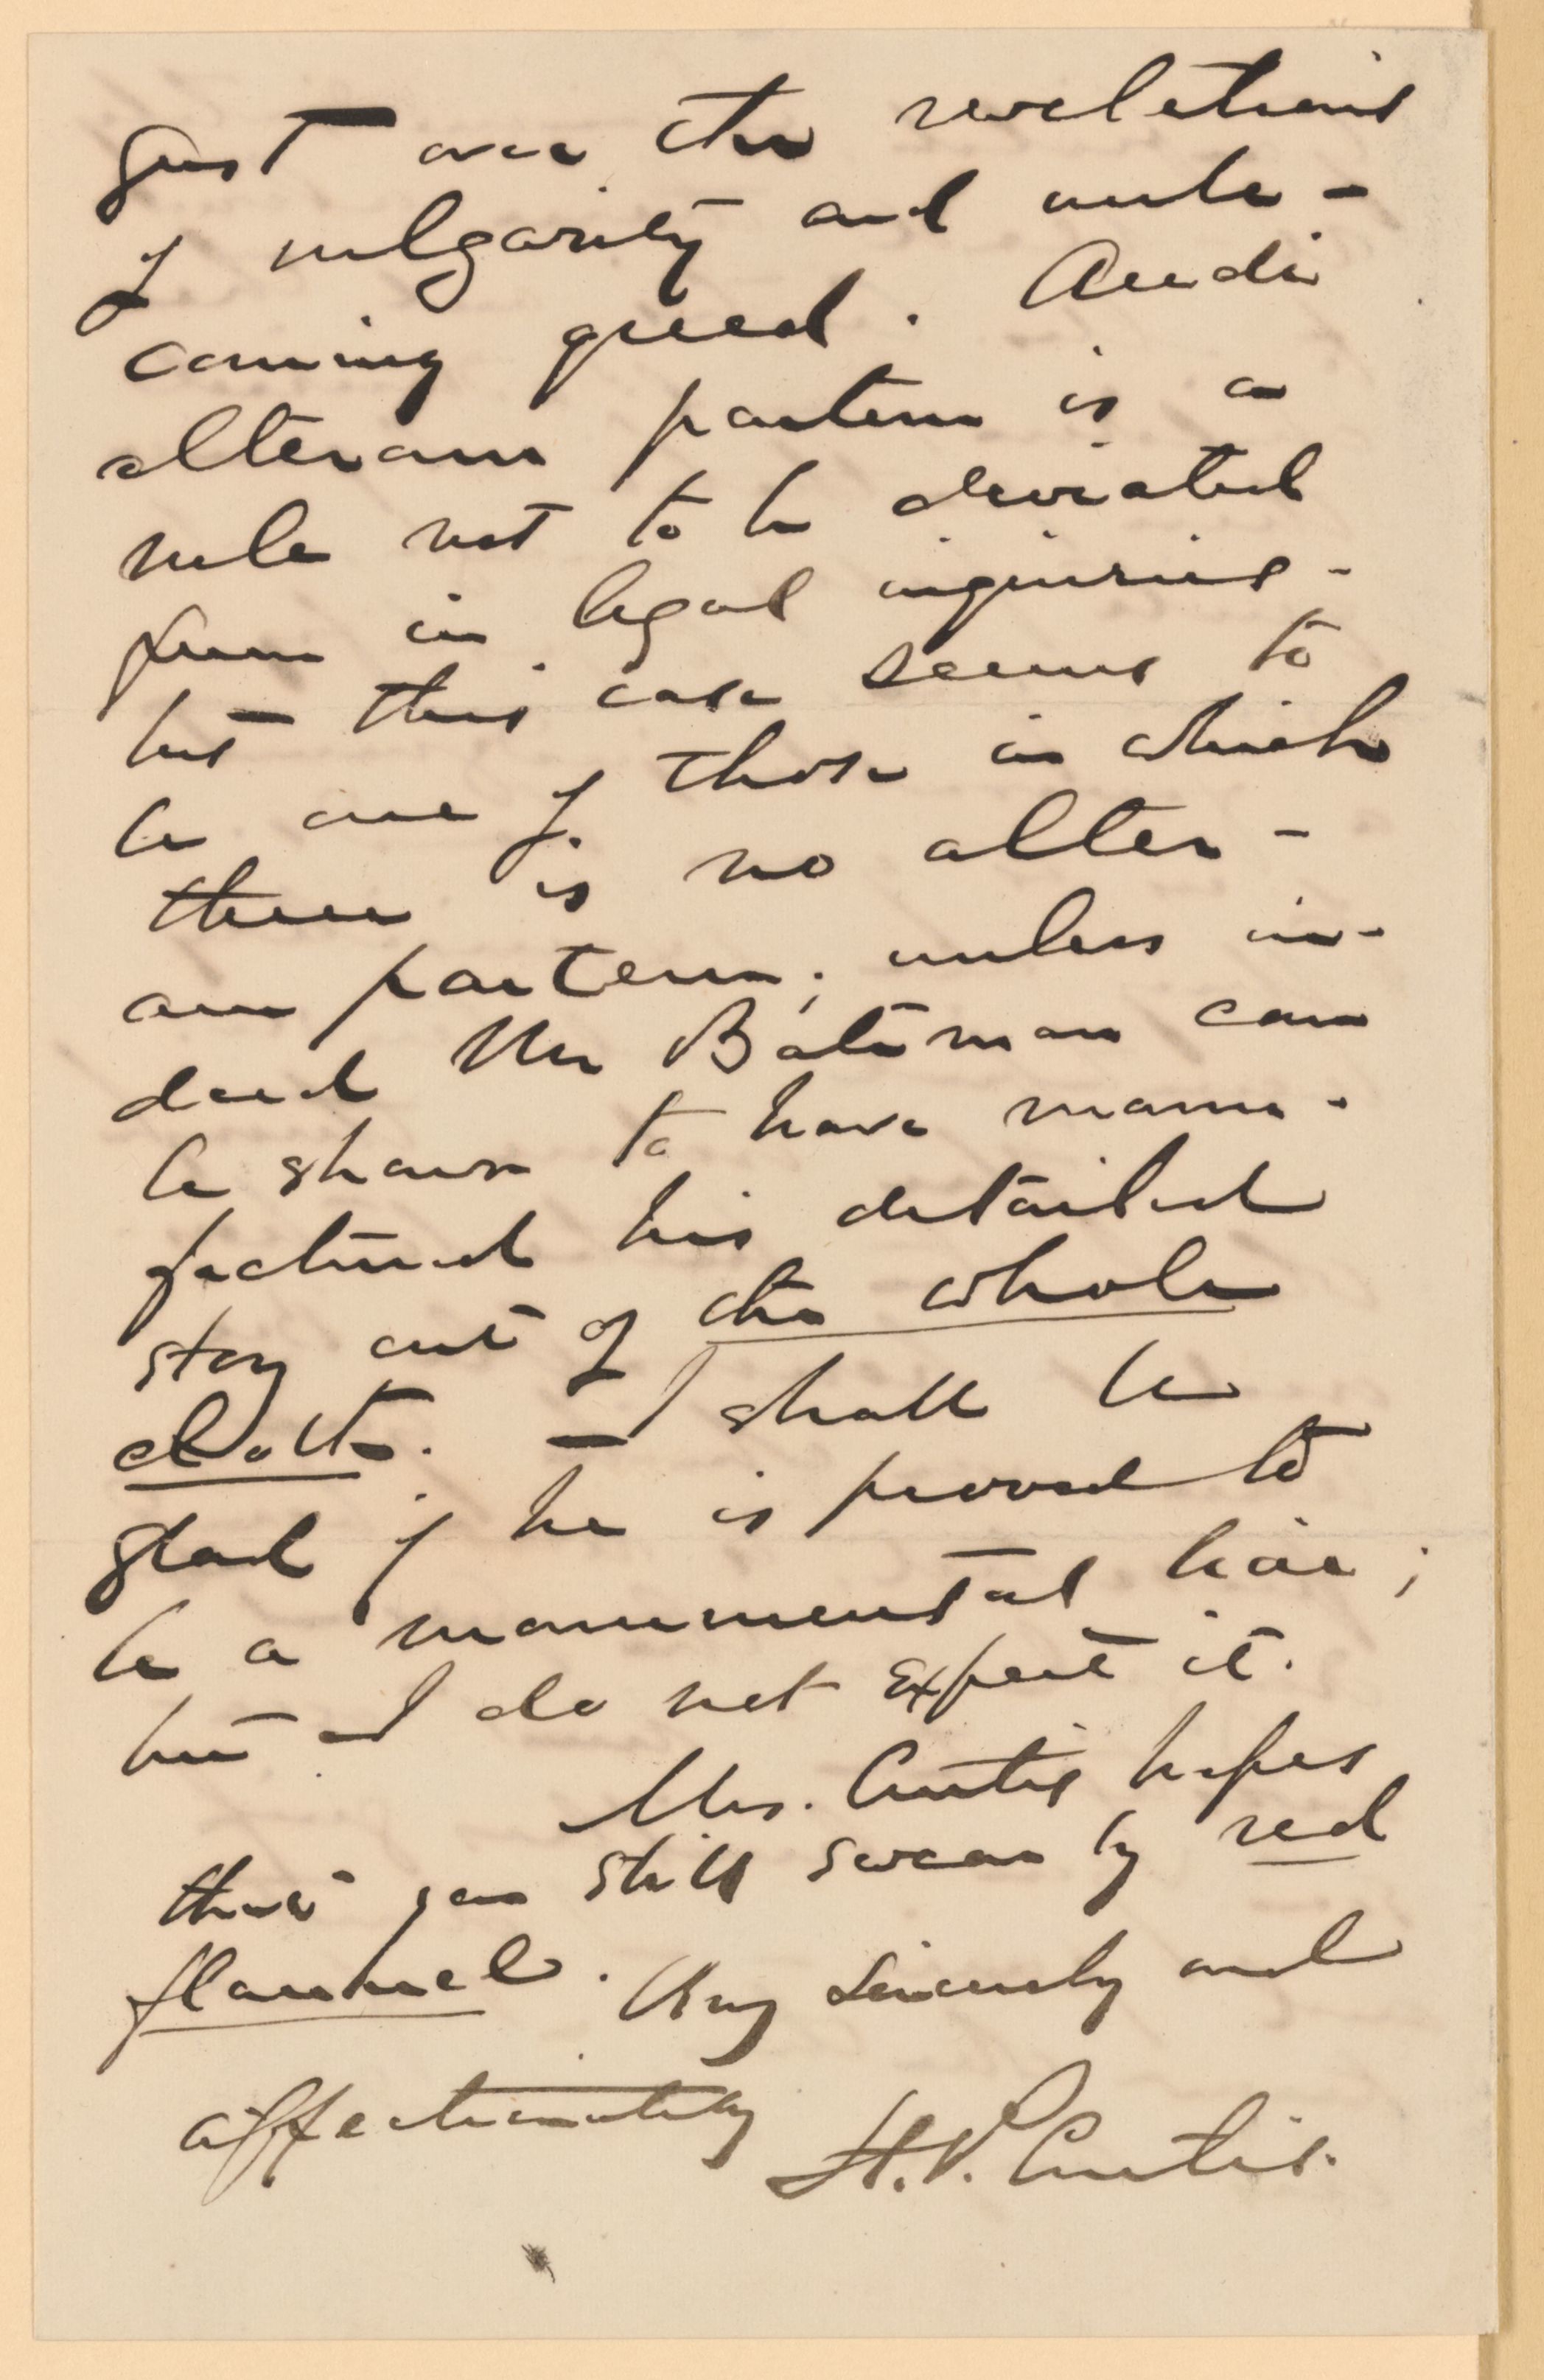 gust over the revelations
of vulgarity and unbe-
coming greed. Audi
alteram partem is a
rule not to be deviated
from in legal inquiries -
but this case seems to
be one of those in which
there is no alter-
am partem; unless in-
deed Mr Bateman can
be shown to have manu-
factured his detailed
story out of the whole
cloth. I shall be
glad if he is proved to
be a monumental liar;
but I do not expect it.
Mrs. Curtis hopes
that you still swear by red
flannel. Very sincerely and
affectionately
H. P. Curtis.